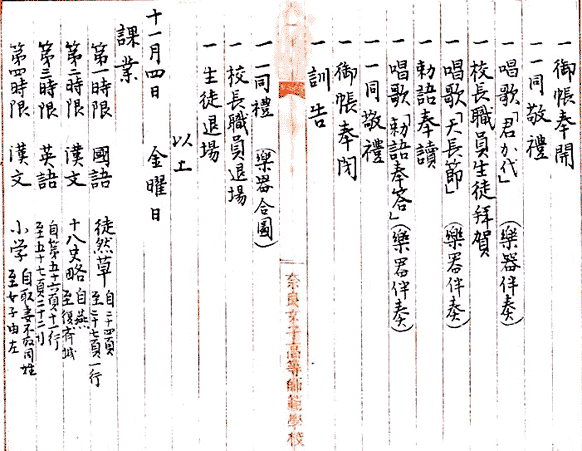 一 御帳奉開
一 一同敬禮
一 唱歌「君か代」(樂器伴奏)
一 校長職員生徒拜賀
一 唱歌「天長節」(樂器伴奏)
一 勅語奉讀
一 唱歌「勅語奉答」(樂器伴奏)
一 一同敬禮
一 御帳奉閉
一 訓告
奈良女子高等師範學校
一 一同禮 (樂器合圖)
一 校長職員退場
一 生徒退場
以上
十一月四日 金曜日
課業
第一時限 國語 徒然草 自二十四頁
至二十七頁一行
第二時限 漢文 十八史略 自燕
至復齊城
第三時限 英語 自第五十六頁十一行
至五十七頁二十二行
第四時限 漢文 小学 自取妻不取同姓
至女子由左